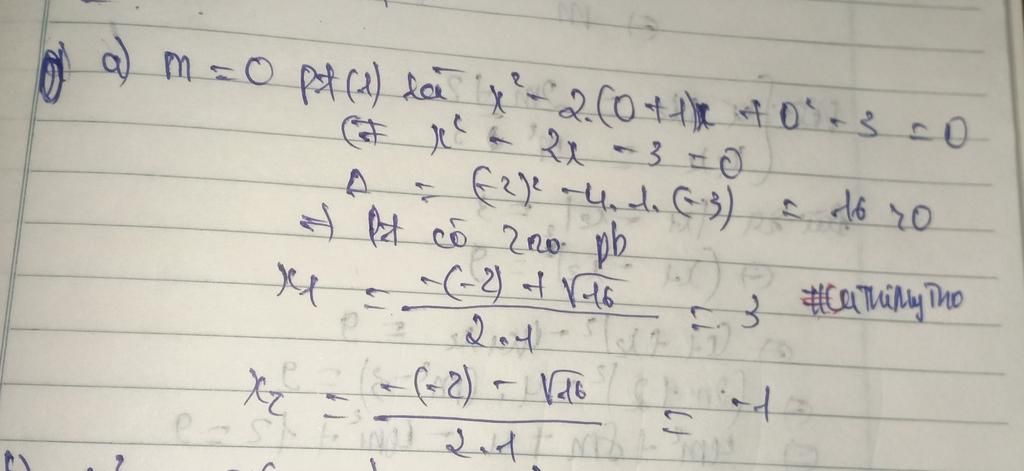 a) m = 0 pt(1) là x² - 2.(0+1)x + 0² - 3 = 0
(=) x² - 2x - 3 = 0
Δ = (-2)² - 4.1.(-3) = 16 > 0
=) Pt có 2 no pb
x₁ = (-(-2) + √16) / 2.1 = 3
#CaThiMyTho
x₂ = (-(-2) - √16) / 2.1 = -1